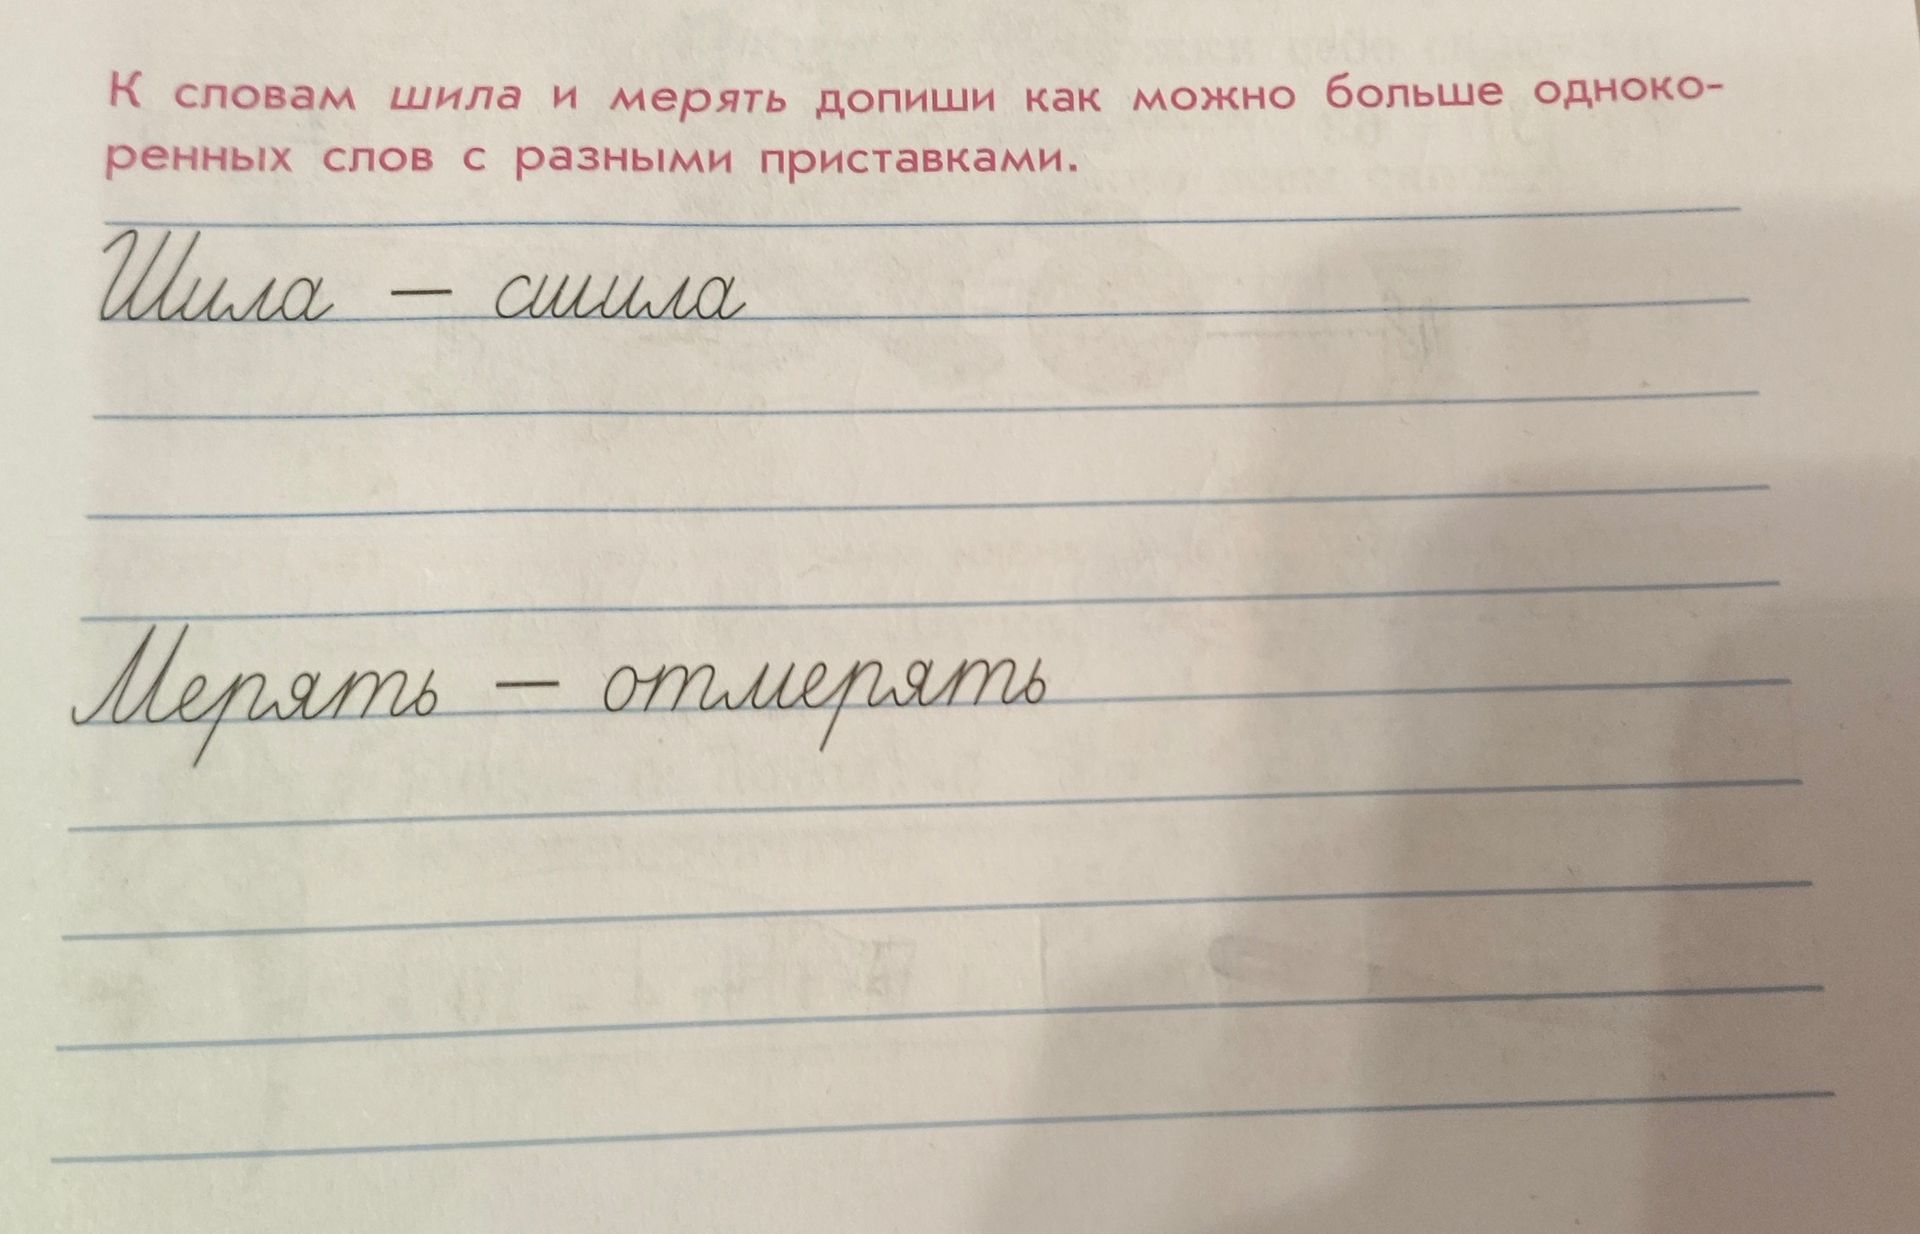 К словам шила и мерять допиши как можно больше одноко-
ренных слов с разными приставками.
Шила — сшила
Мерять — отмерять